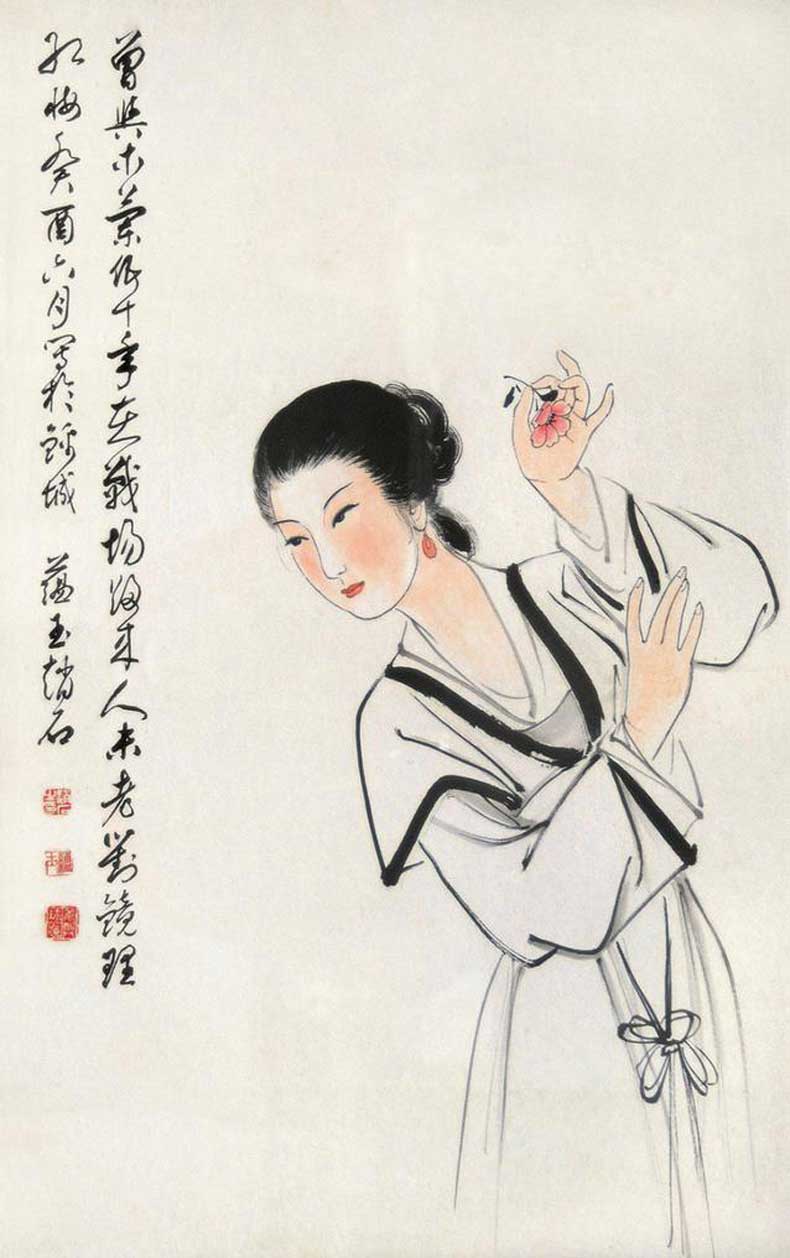 曾與木蘭伍十年在戰場歸來人未老對鏡理
紅妝癸酉六月寫於錦城 蘊玉趙石